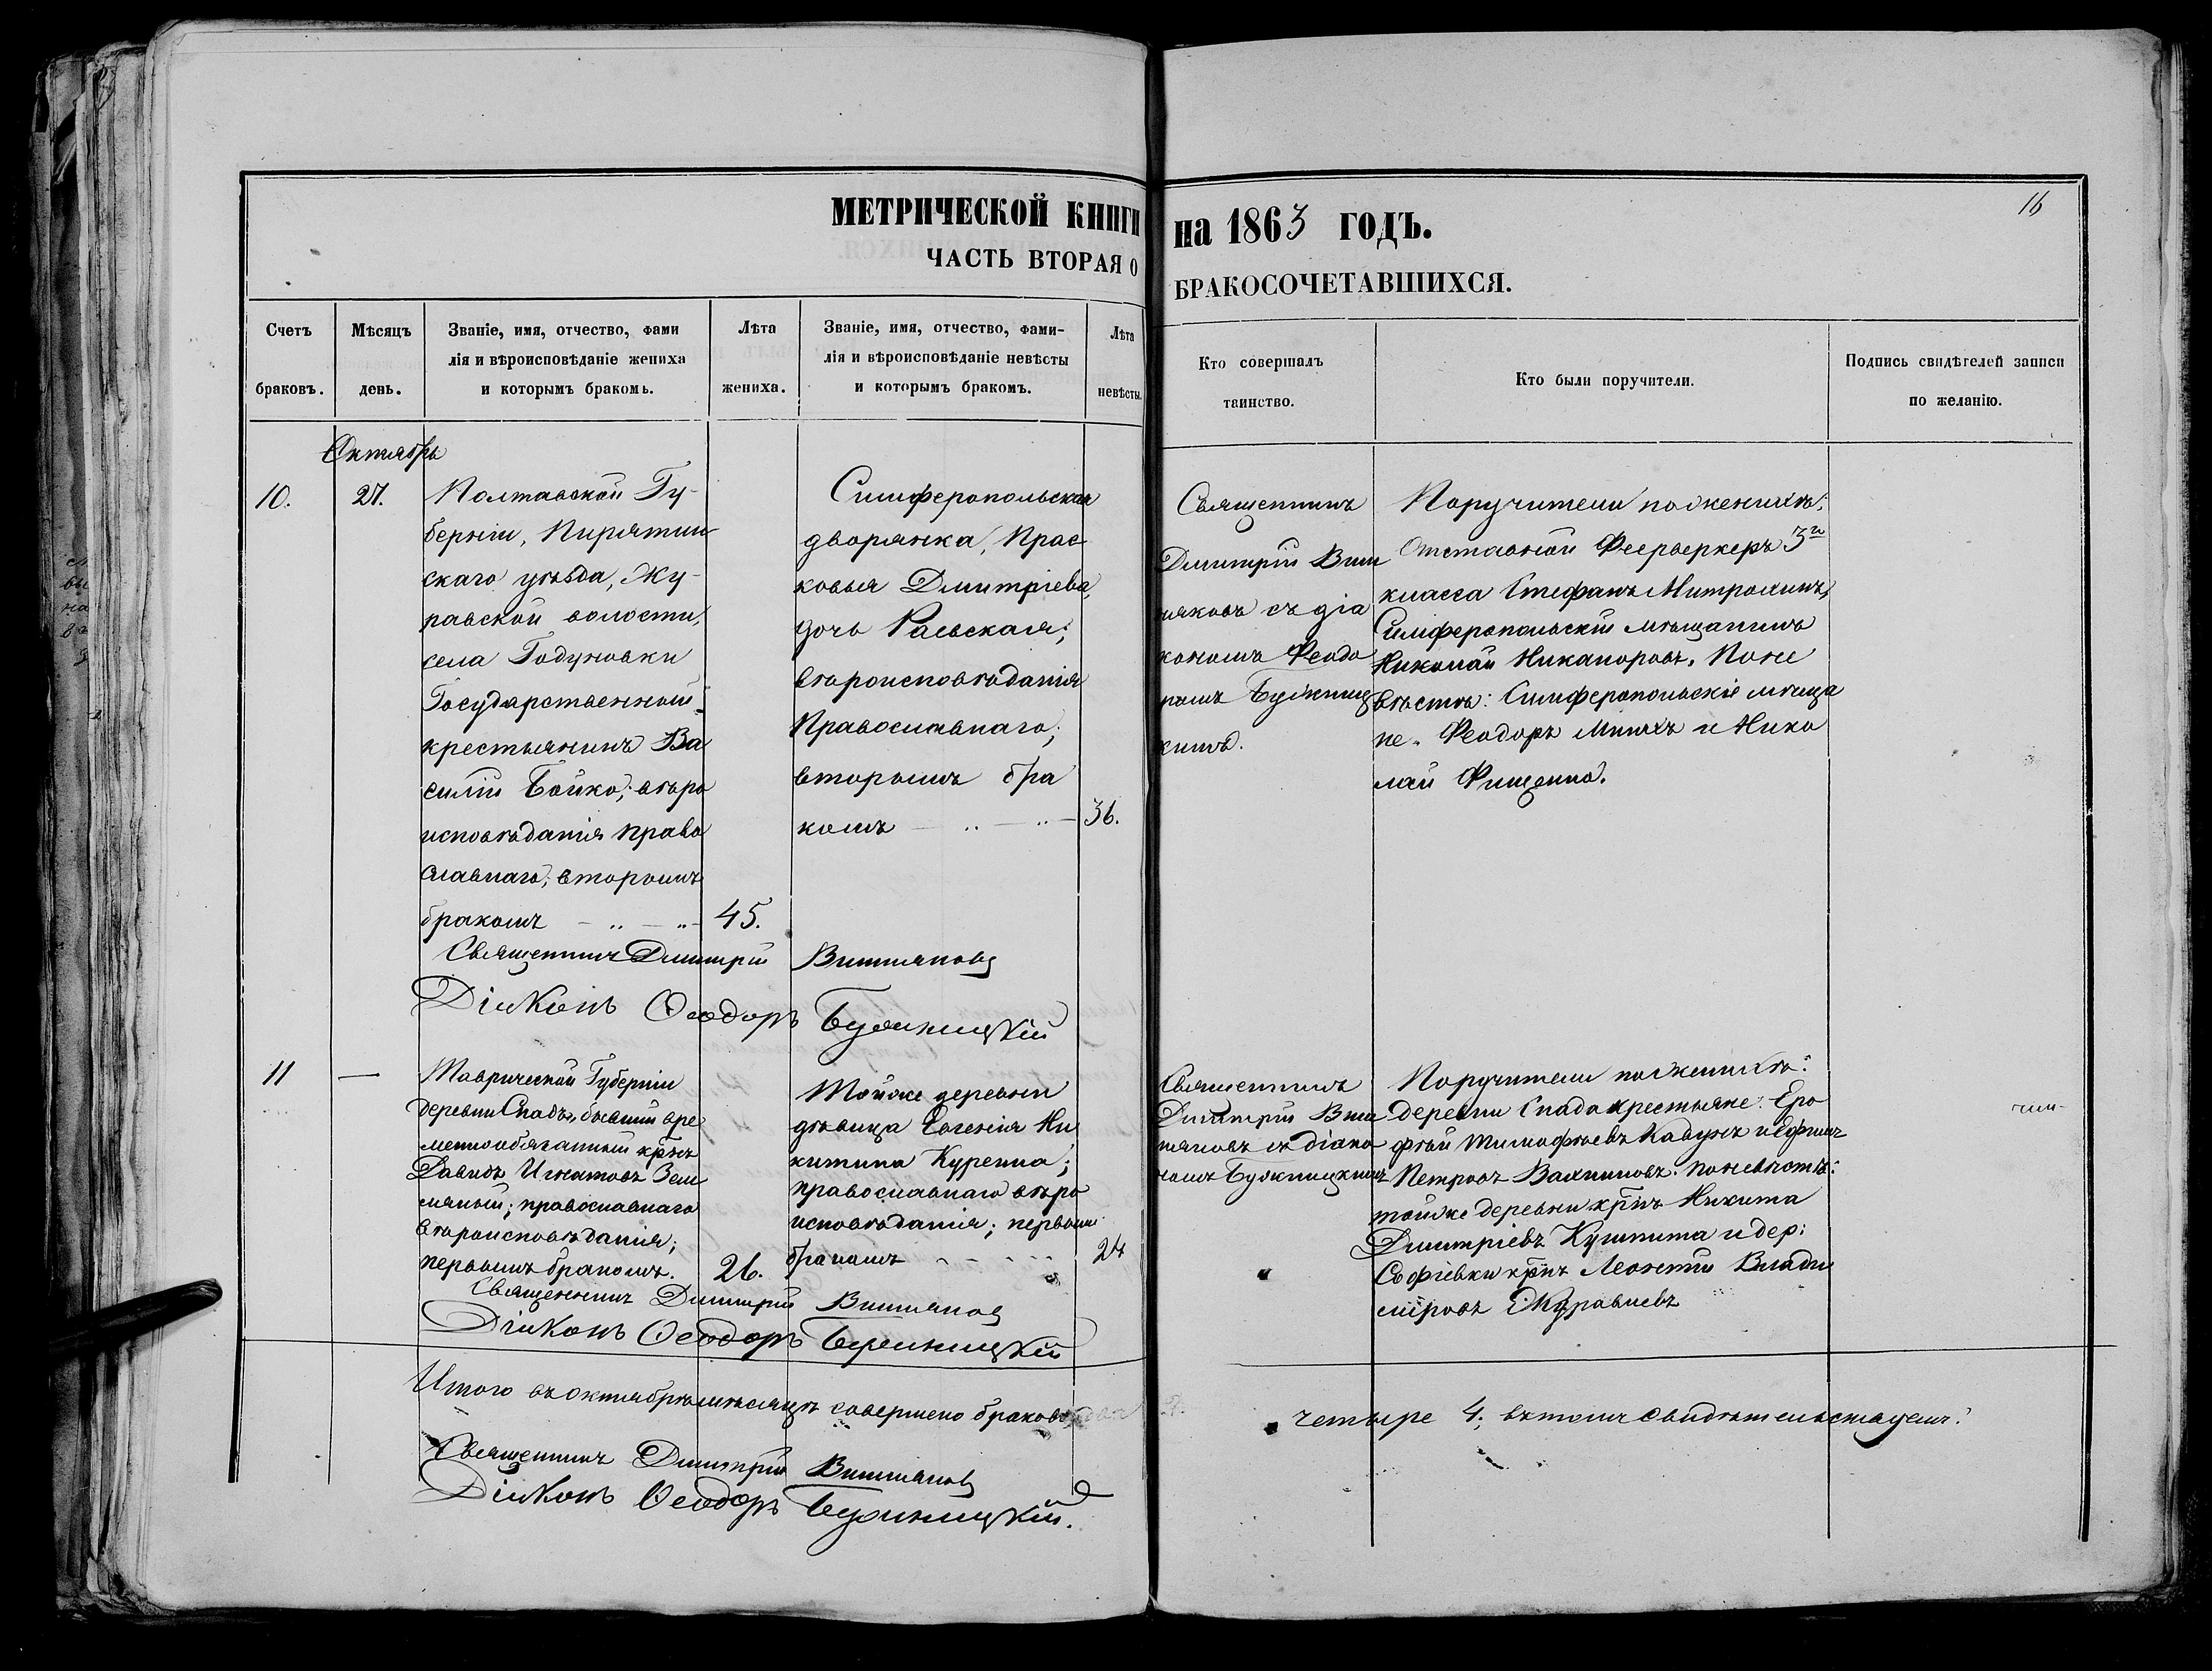 16
МЕТРИЧЕСКОЙ КНИГИ на 1863 ГОДЪ.
ЧАСТЬ ВТОРАЯ О БРАКОСОЧЕТАВШИХСЯ.
Счетъ
браковъ.
Мѣсяцъ
день.
Званіе, имя, отчество, фами
лія и вѣроисповѣданіе жениха
и которымъ бракомъ.
Лѣта
жениха.
Званіе, имя, отчество, фами-
лія и вѣроисповѣданіе невѣсты
и которымъ бракомъ.
Лѣта
невѣсты.
Кто совершалъ
таинство.
Кто были поручители.
Подпись свидѣтелей записи
по желанію.
Октябрь
10.
27.
Полтавской Гу-
берніи, Пирятин
скаго уѣзда, Жу-
равской волости,
села Годуновки
Государственный
крестьянинъ Ва
силій Бойко; вѣро
исповѣданія право
славнаго; вторымъ
бракомъ
45.
Симферопольская
дворянка, Прас
ковья Дмитріева
дочь Раевская;
вѣроисповѣданія
Православнаго;
вторымъ бра
комъ
36.
Священникъ
Дмитрій Виш
няковъ съ діа
кономъ Феодо
ромъ
кимъ.
Поручители по женихѣ:
Отставной Феерверкеръ 3го
класса Стефанъ Митрохинъ,
Симферопольскій мѣщанинъ
Николай Никаноровъ. По не
вѣстѣ: Симферопольскіе мѣща
не. Феодоръ и Нико
лай
Священникъ Дмитрій Вишняковъ
Діаконъ Ѳеодоръ
11
—
Таврической Губерніи
деревни Спадъ, бывшій вре
меннообязанный крнъ
Давидъ Игнатовъ Зем
ляный; православнаго
вѣроисповѣданія;
первымъ бракомъ.
26.
Той же деревни
дѣвица Евгенія Ни
китина Курепна;
православнаго вѣро
исповѣданія; первымъ
бракомъ
24
Священникъ
Дмитрій Виш
няковъ съ діако
номъ
Поручители по женихѣ:
деревни Спадо крестьяне: Еро
фѣй Тимофѣевъ Кавунъ и Ефимъ
Петровъ По невѣстѣ:
той же деревни крнъ Никита
Дмитріевъ и дер:
Софіевки крнъ Леонтій Влади
міровъ Журавлевъ
Священникъ Дмитрій Вишняковъ
Діаконъ Ѳеодоръ
Итого въ октябрѣ мѣсяцѣ совершено браковъ четыре 4; въ томъ свидѣтельствуемъ:
Священникъ Дмитрій Вишняковъ
Діаконъ Ѳеодоръ